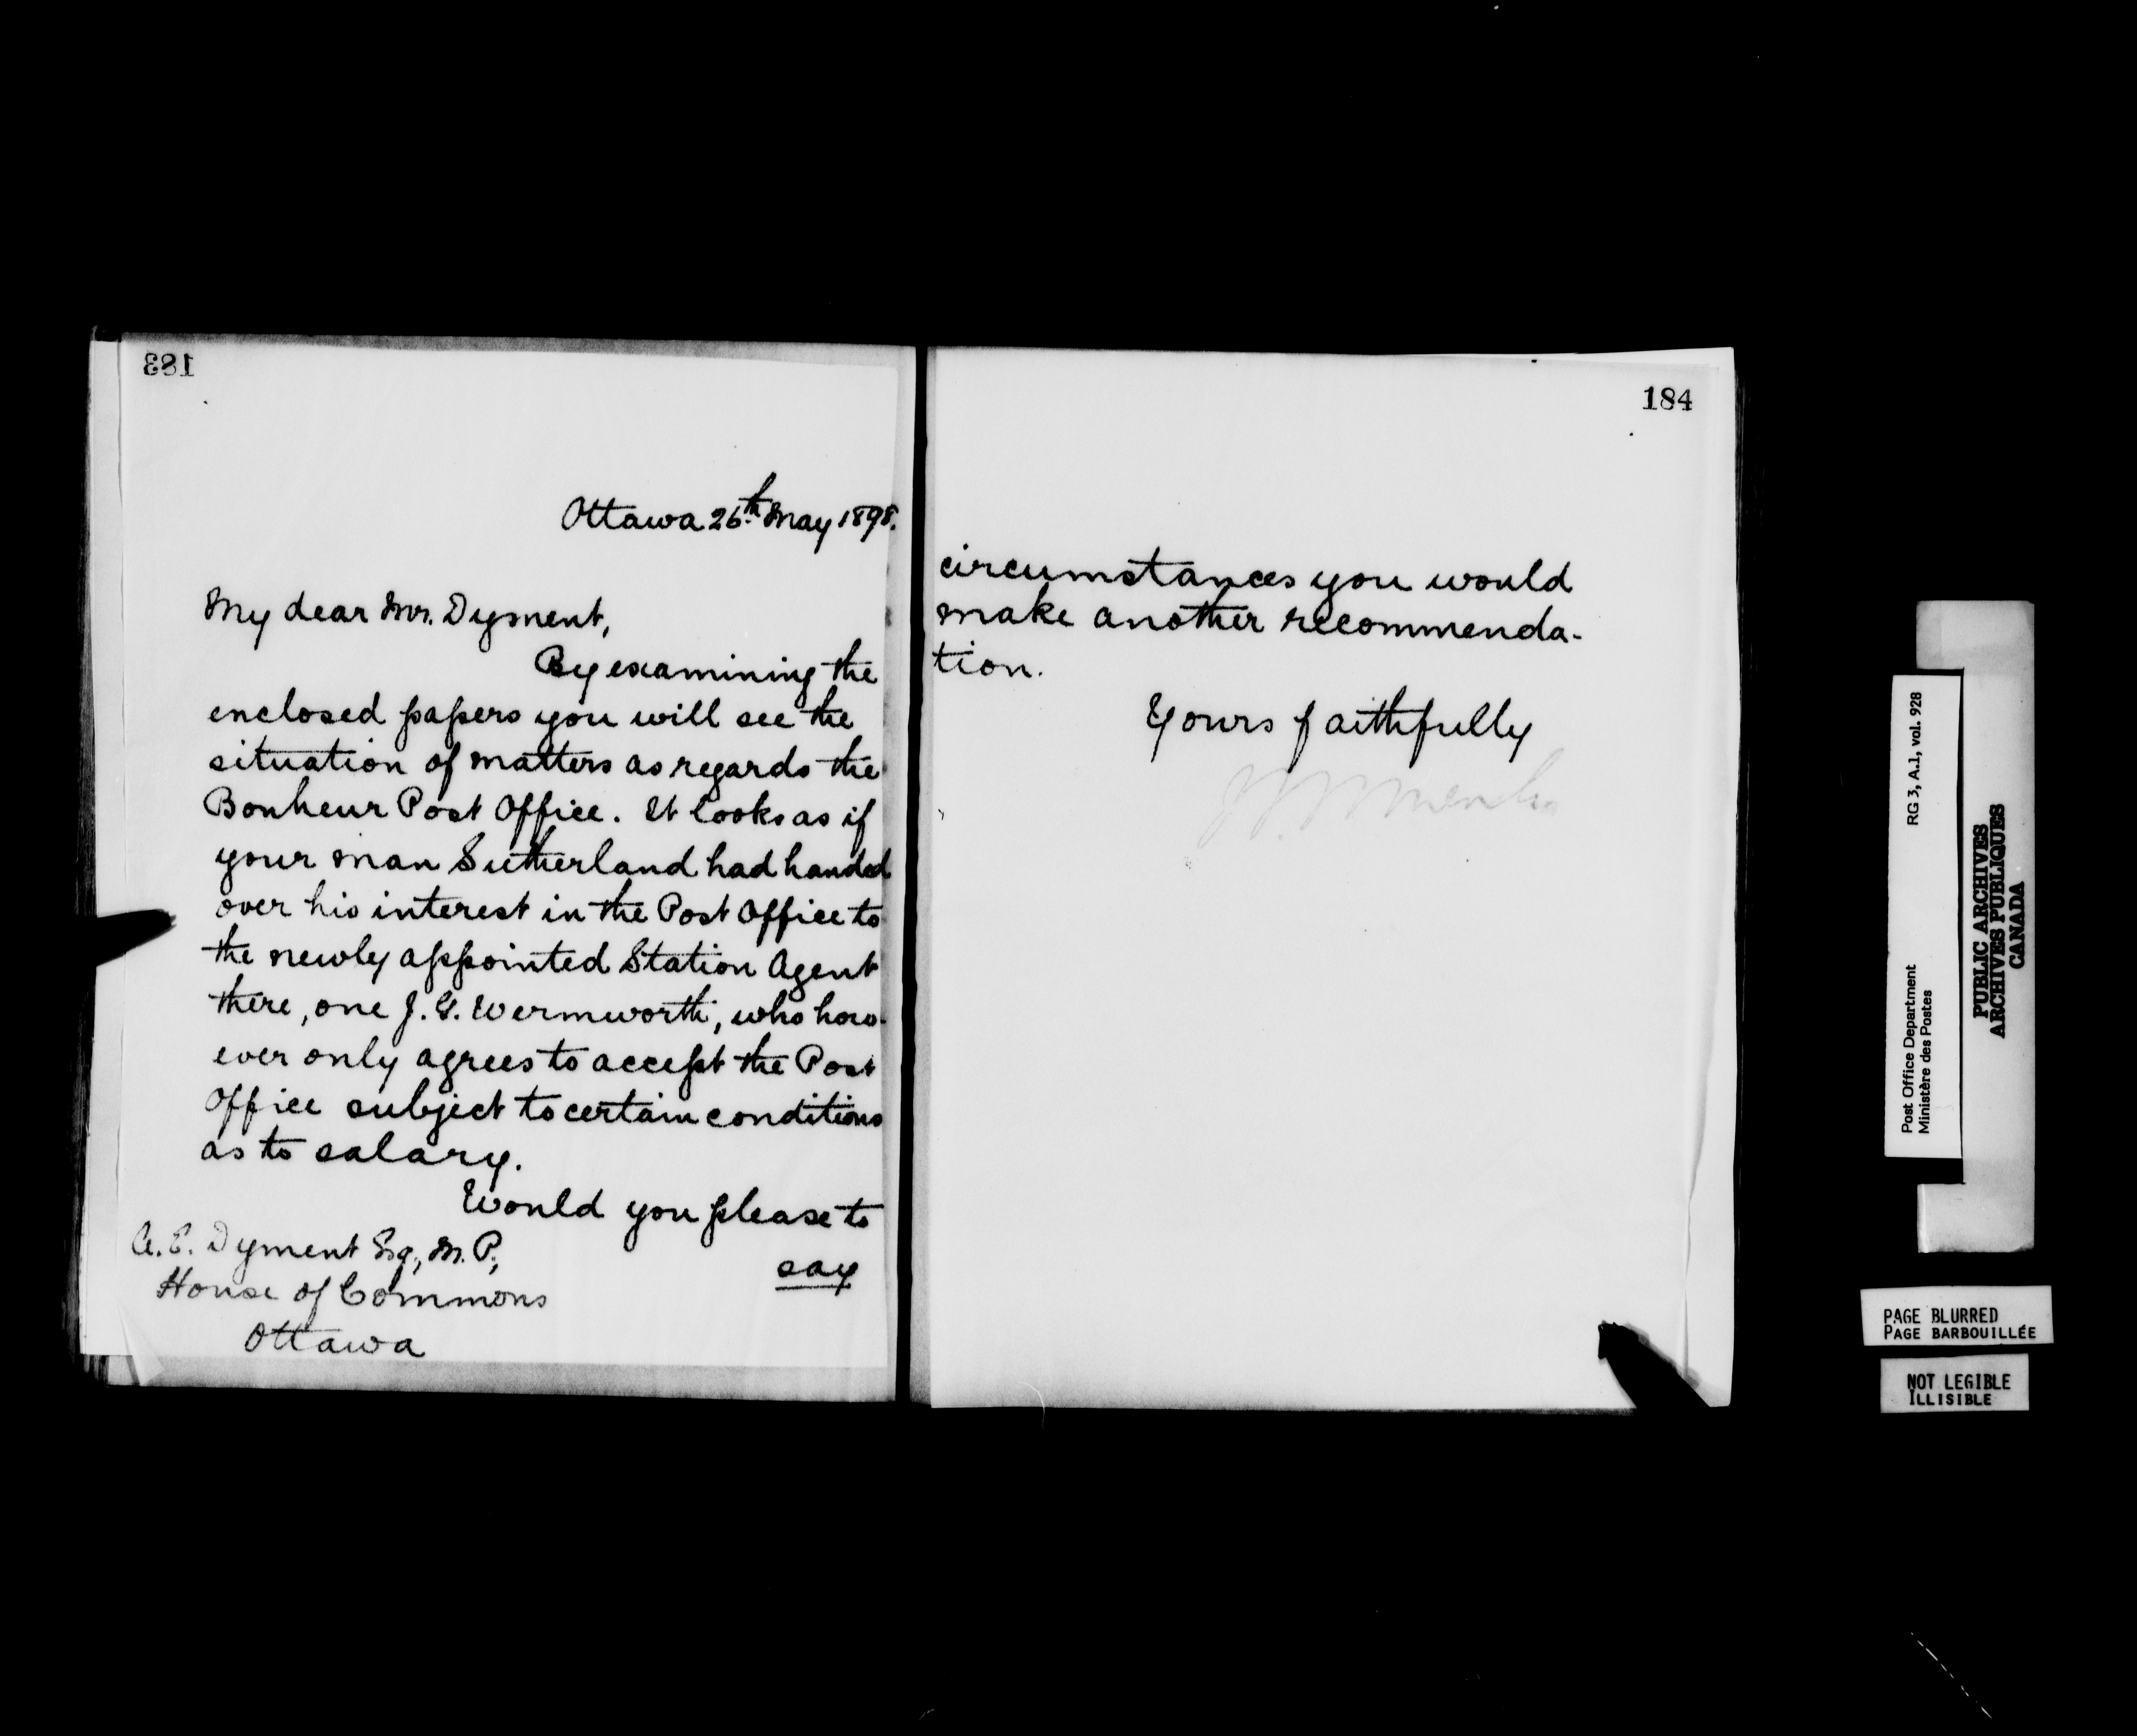 183
Ottawa 26th May 1898.
My dear Mr. Dyment,
By examining the
enclosed papers you will see the
situation of matters as regards the
Bonheur Post Office. It looks as if
your man Sutherland had handed
over his interest in the Post Office to
the newly appointed Station Agent
there, one J. G. Wermworth, who how-
ever only agrees to accept the Post
Office subject to certain conditions
as to salary.
Would you please to
say
A. E. Dyment Esq., M.P.,
House of Commons
Ottawa
184
circumstances you would
make another recommenda-
tion.
Yours faithfully
RG 3, A.1, vol. 928
Post Office Department
Ministère des Postes
PUBLIC ARCHIVES
ARCHIVES PUBLIQUES
CANADA
PAGE BLURRED
PAGE BARBOUILLÉE
NOT LEGIBLE
ILLISIBLE